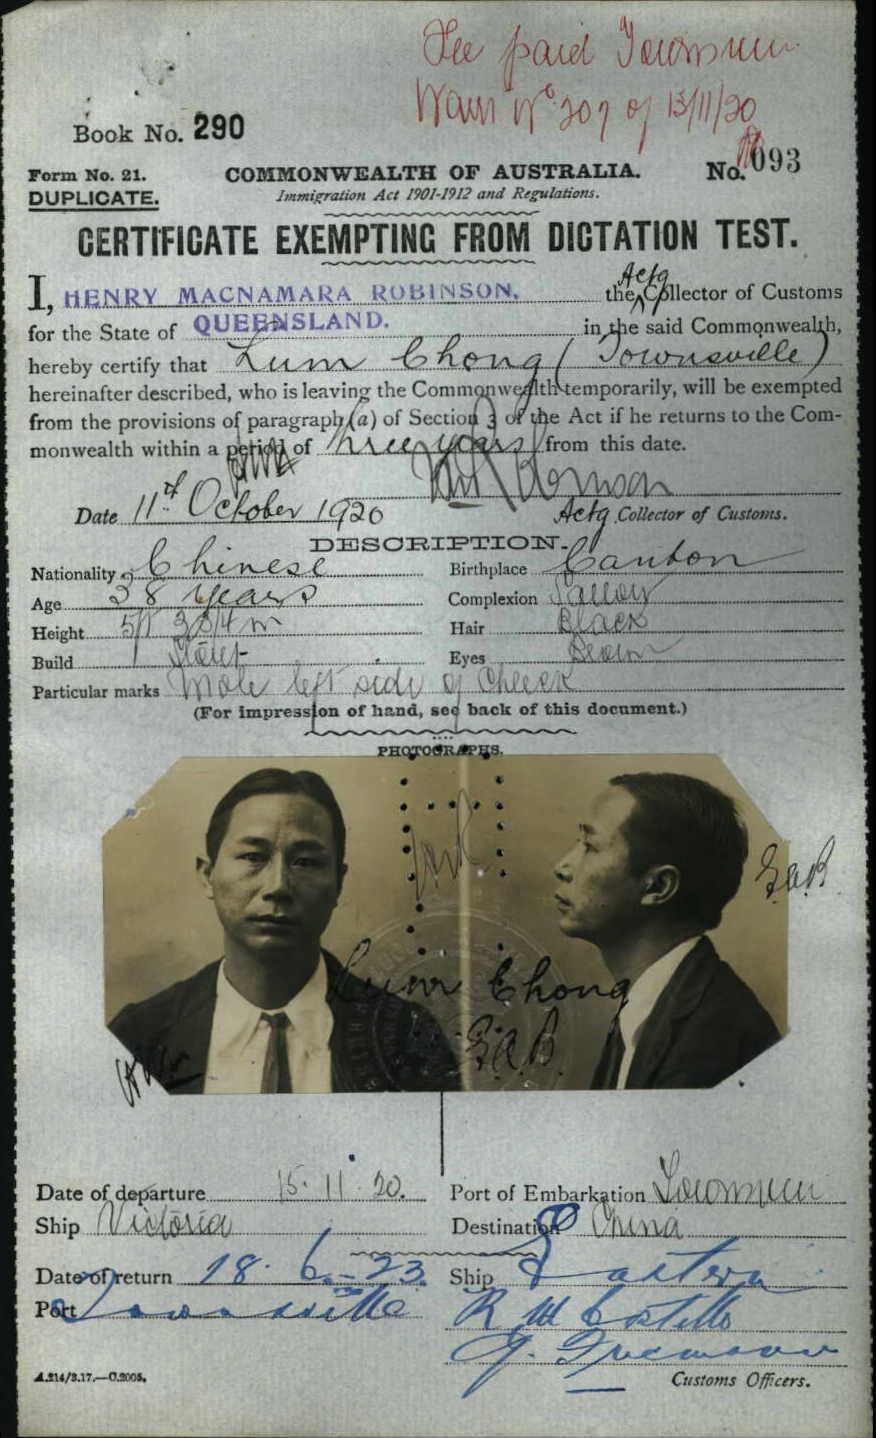 Fee paid Townsville
No. 207 of 13/11/20
Book No. 290
Form No. 21.
COMMONWEALTH OF AUSTRALIA.
No. 093
DUPLICATE.
Immigration Act 1901-1912 and Regulations.
CERTIFICATE EXEMPTING FROM DICTATION TEST.
I, HENRY MACNAMARA ROBINSON, the Actg Collector of Customs
for the State of QUEENSLAND. in the said Commonwealth,
hereby certify that Lum Chong (Townsville)
hereinafter described, who is leaving the Commonwealth temporarily, will be exempted
from the provisions of paragraph (a) of Section 3 of the Act if he returns to the Com-
monwealth within a period of three years from this date.
Date 11th October 1920
Actg Collector of Customs.
DESCRIPTION.
Nationality Chinese
Birthplace Canton
Age 38 years
Complexion Sallow
Height 5ft 3 3/4 in
Hair Black
Build Stout
Eyes Brown
Particular marks Mole left side of cheek
(For impression of hand, see back of this document.)
PHOTOGRAPHS.
G.A.B.
Lum Chong
G.A.B.
Date of departure 15.11.20.
Port of Embarkation Townsville
Ship Victoria
Destination China
Date of return 18.6.23.
Ship Eastern
Port Townsville
R W Costello
Customs Officers.
A.214/3.17.—C.2005.